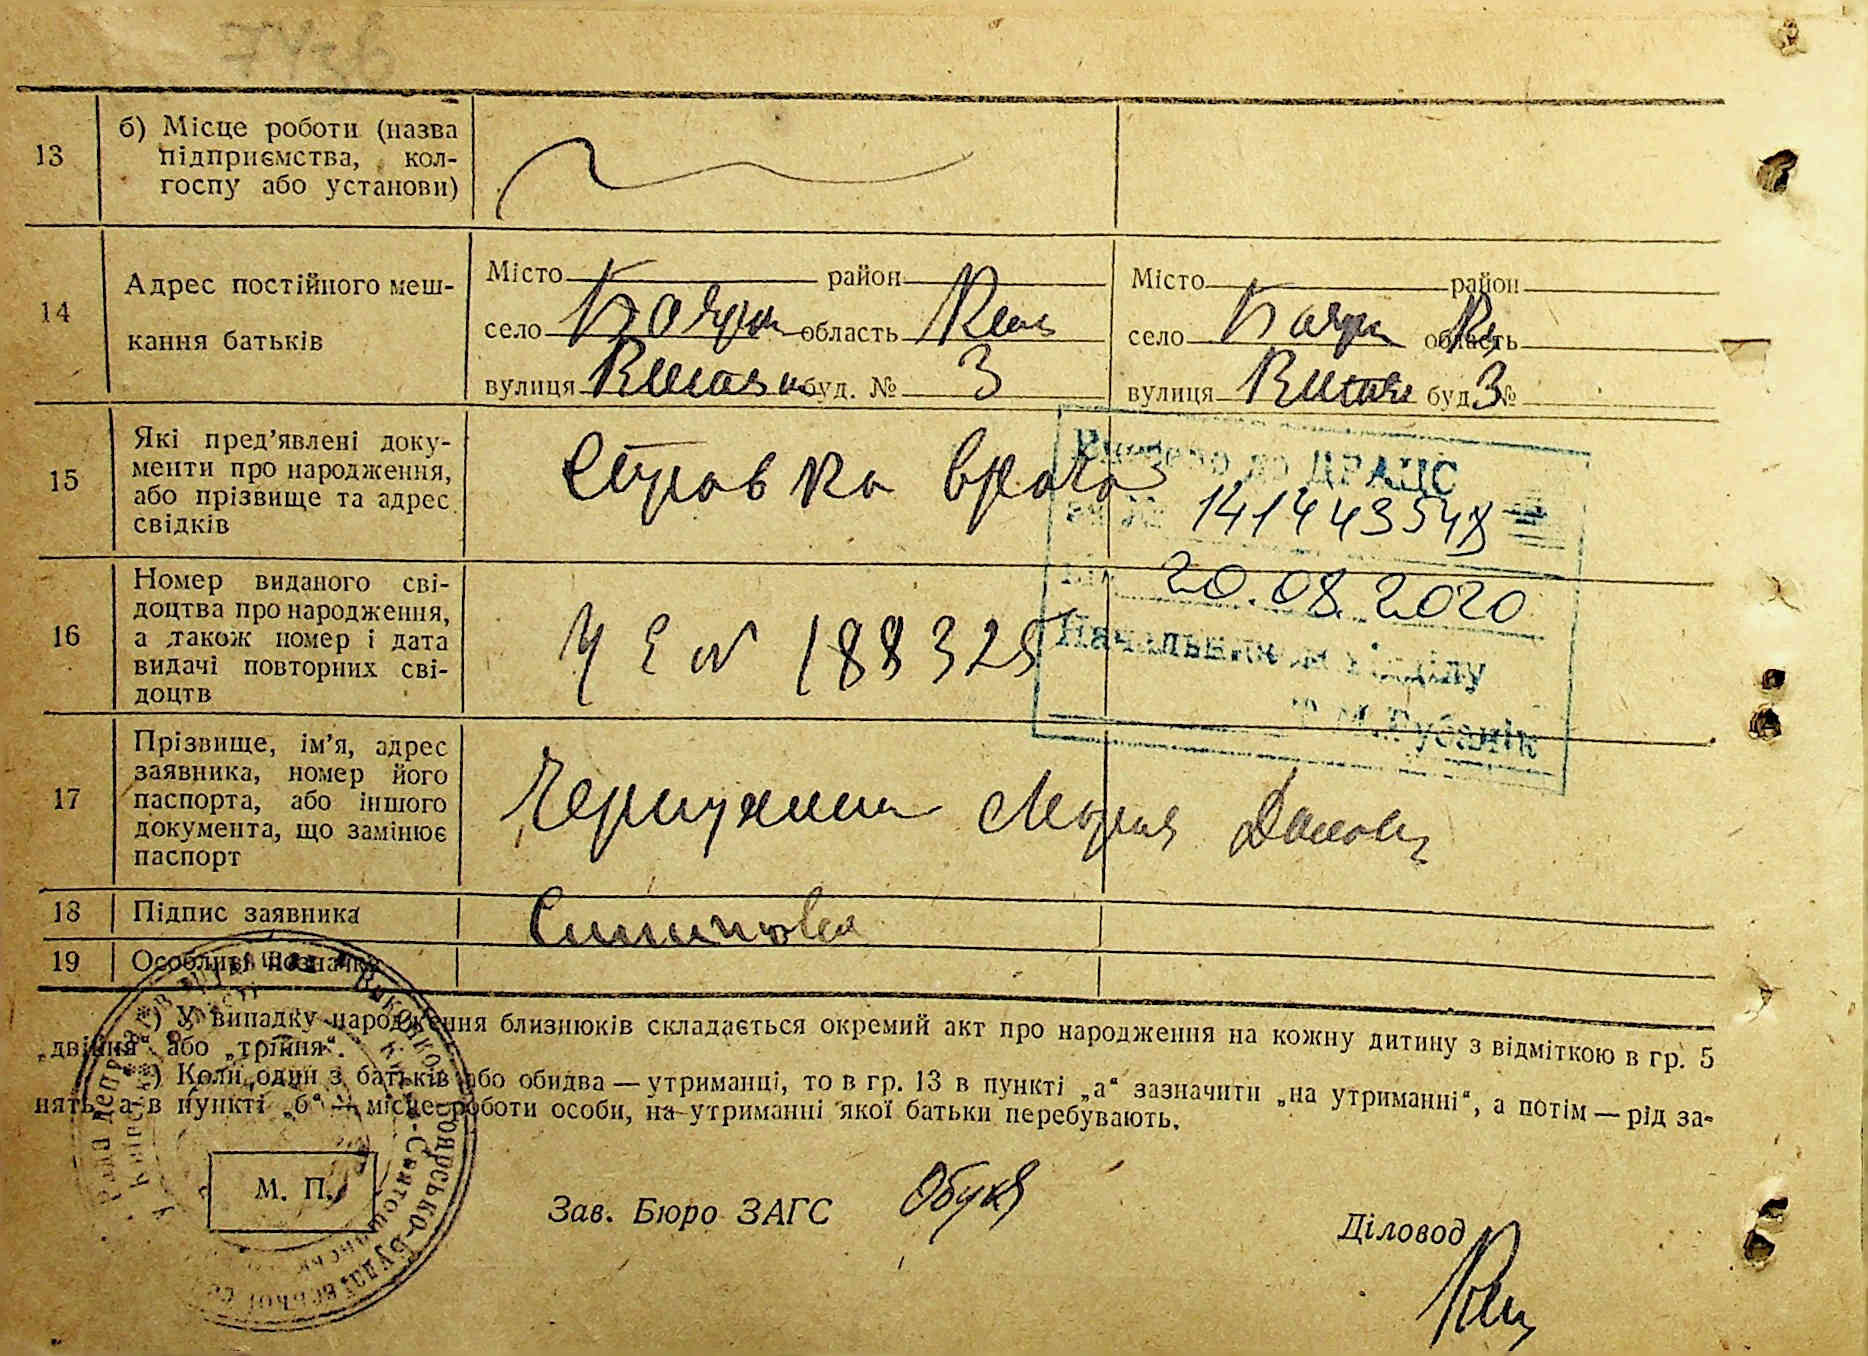 13
б) Місце роботи (назва
підприємства, кол-
госпу або установи)
14
Адрес постійного меш-
кання батьків
Місто район
село Боярка область Киев
вулиця буд. № 3
Місто район
село область
вулиця буд. № 3
15
Які пред’явлені доку-
менти про народження,
або прізвище та адрес
свідків
Справка врача
16
Номер виданого сві-
доцтва про народження,
а також номер і дата
видачі повторних сві-
доцтв
188325
17
Прізвище, ім’я, адрес
заявника, номер його
паспорта, або іншого
документа, що замінює
паспорт
Мария
18
Підпис заявника
19
Особливі позначки
Внесено до ДРАЦС
за №
20.08.2020
Начальником відділу
*) У випадку народження близнюків складається окремий акт про народження на кожну дитину з відміткою в гр. 5
„двійня“ або „трійня“.
**) Коли один з батьків або обидва — утриманці, то в гр. 13 в пункті „а“ зазначити „на утриманні“, а потім — рід за-
нять, а в пункті „б“ — місце роботи особи, на утриманні якої батьки перебувають.
М. П.
Зав. Бюро ЗАГС
Діловод